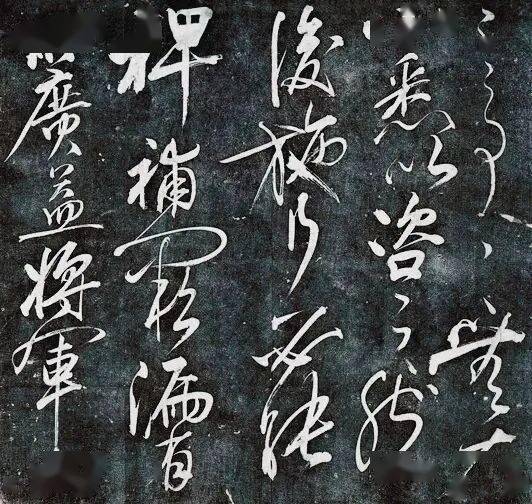 之事〻無
悉以咨之然
後施行必能
裨補闕漏有
廣益將軍